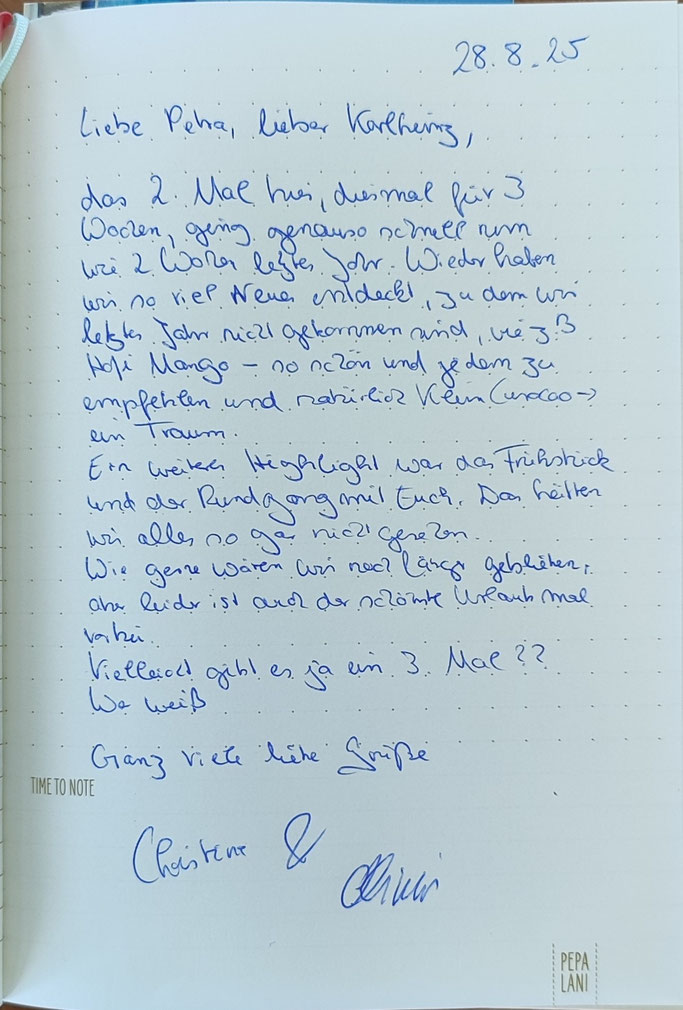 28.8.25
Liebe Petra, lieber Karlheinz,
das 2. Mal hier, diesmal für 3
Wochen, ging genauso schnell rum
wie 2 Wochen letztes Jahr. Wieder haben
wir so viel Neues entdeckt, zu dem wir
letztes Jahr nicht gekommen sind, wie z.B
Hofi Mango – so schön und jedem zu
empfehlen und natürlich Klein Curacao ->
ein Traum.
Ein weiteres Highlight war das Frühstück
und der Rundgang mit Euch. Das hätten
wir alles so gar nicht gesehen.
Wie gerne wären wir noch länger geblieben,
aber leider ist auch der schönste Urlaub mal
vorbei.
Vielleicht gibt es ja ein 3. Mal ??
Wer weiß
Ganz viele liebe Grüße
TIME TO NOTE
Christine &
Oliver
PEPA
LANI